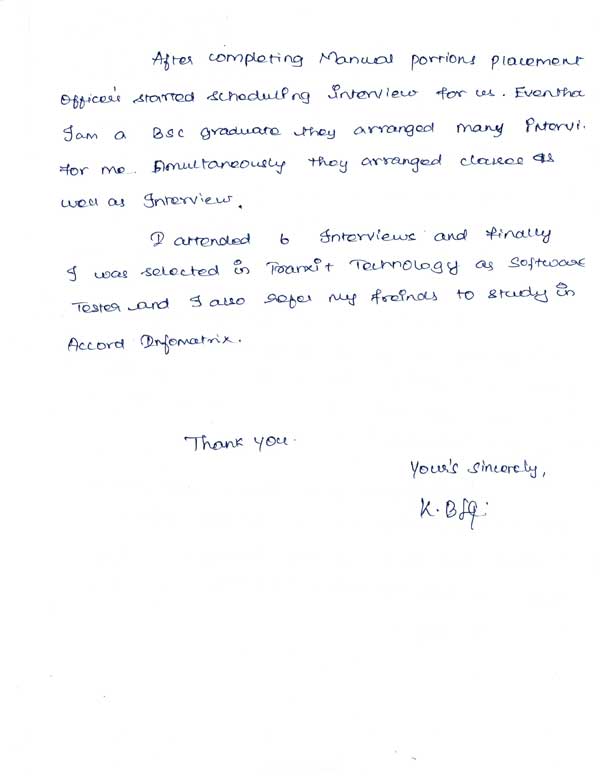 After completing Manual portions placement
Officer's started scheduling Interview for us. Eventho
I am a BSC graduate they arranged many Intervi.
for me. Simultaneously they arranged classes as
well as Interview.
I attended 6 Interviews and finally
I was selected in Tranxit Technology as Software
Tester and I also refer my freinds to study in
Accord Infomatrix.
Thank you.
Your's Sincerely,
K.